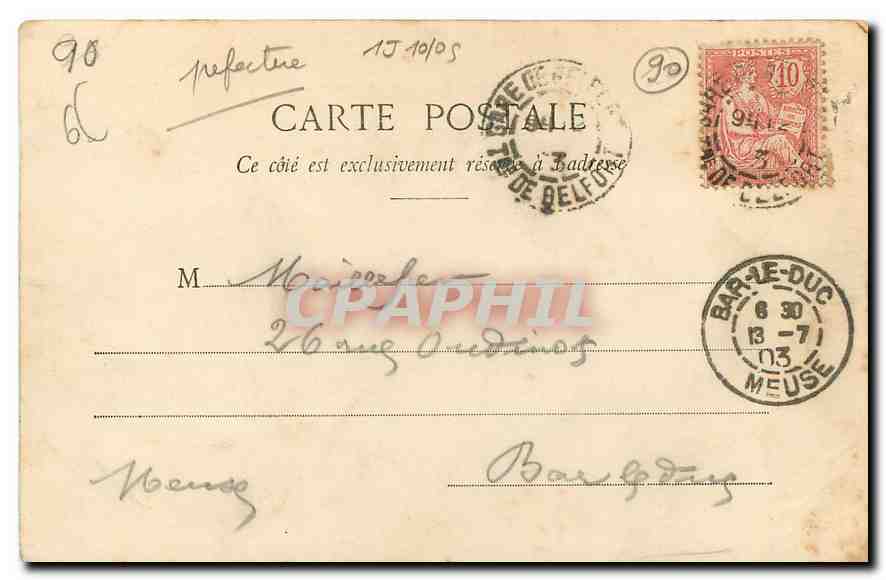 90
prefecture
1J 10/05
90
6
POSTES
10
CARTE POSTALE
Ce côté est exclusivement réservé à l'adresse
GARE DE BELFORT
3
TRE DE BELFORT
M
CPAPHIL
26 rue Oudinot
BAR-LE-DUC
6 30
13 -7
03
MEUSE
Bar le duc
Meuse